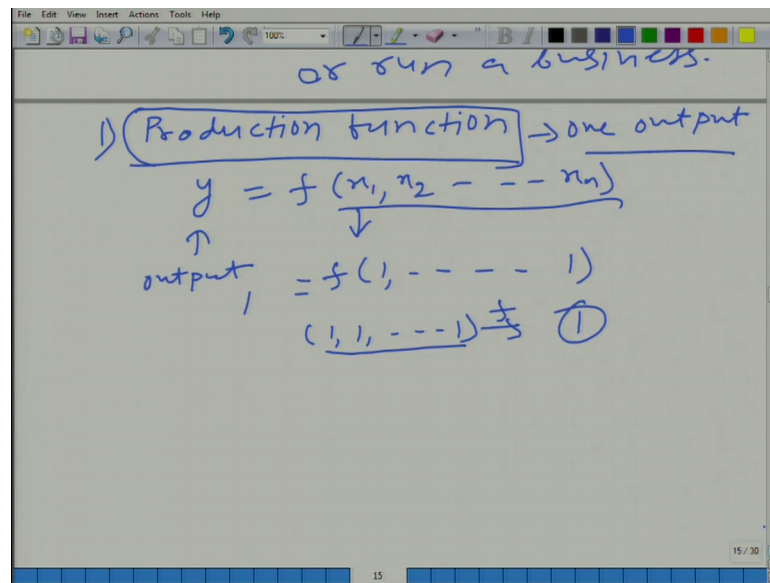 File Edit View Insert Actions Tools Help
100%
or run a business.
1) Production function → one output
y = f (x1, x2 - - - - xn)
↑ ↓
output
1 = f (1, - - - - 1)
(1, 1, - - - 1) f→ 1
15 / 30
15